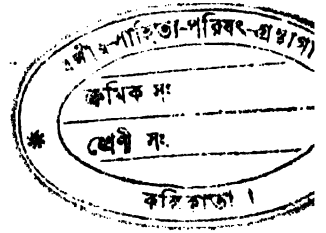 সাহিতা-পরিষৎ-গ্রন্থাগা
ক্রমিক সং
শ্রেণী সং.
কলিকাতা ।